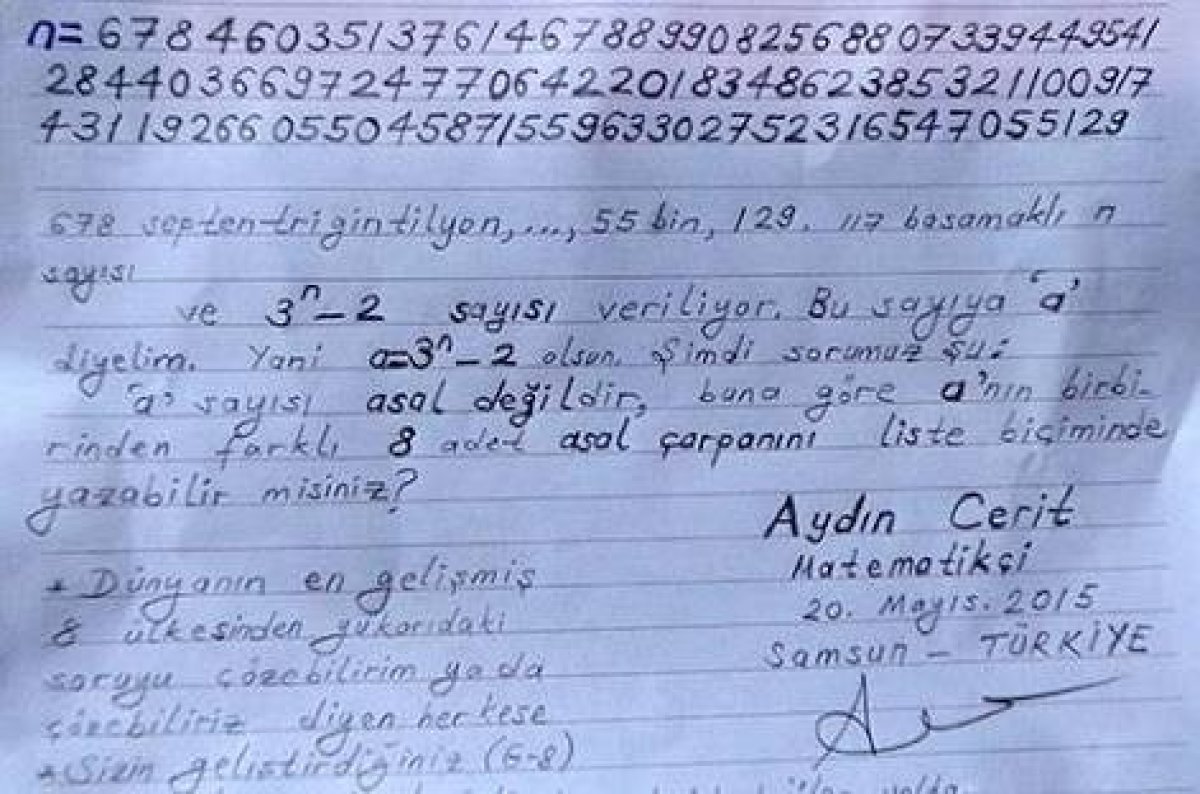 n=67846035137614678899082568807339449541
28440366972477064220183486238532110091​7
431192660550458715596330275231654705​5129
678 septentrigintilyon, ..., 55 bin, 129. 117 basamaklı n
sayısı
ve 3ⁿ-2 sayısı veriliyor. Bu sayıya 'a'
diyelim. Yani a=3ⁿ-2 olsun. Şimdi sorumuz şu:
'a' sayısı asal değildir, buna göre a'nın birbi-
rinden farklı 8 adet asal çarpanını liste biçiminde
yazabilir misiniz?
Aydın Cerit
Matematikçi
20. Mayıs. 2015
Samsun - TÜRKİYE
* Dünyanın en gelişmiş
8 ülkesinden yukarıdaki
soruyu çözebilirim yada
çözebiliriz diyen herkese
* Sizin geliştirdiğiniz (G-8)